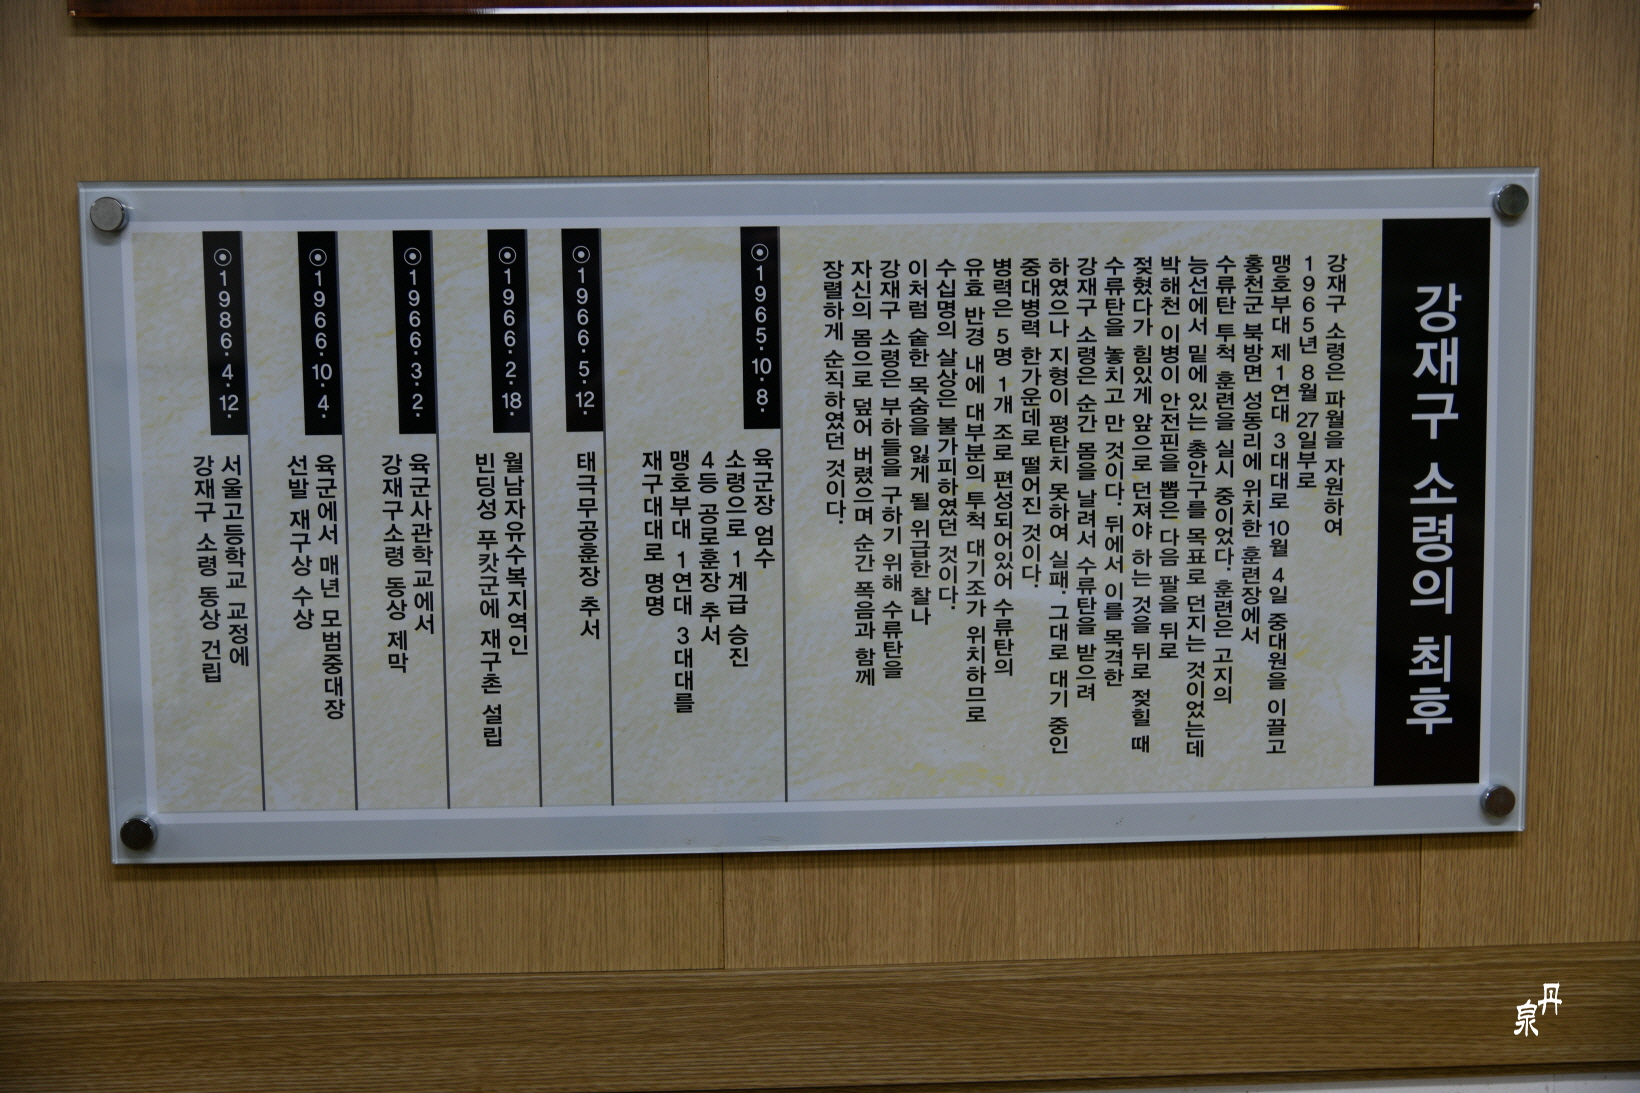 강재구 소령의 최후
강재구 소령은 파월을 자원하여
1965년 8월 27일부로
맹호부대 제1연대 3대대로 10월 4일 중대원을 이끌고
홍천군 북방면 성동리에 위치한 훈련장에서
수류탄 투척 훈련을 실시 중이었다. 훈련은 고지의
능선에서 밑에 있는 총안구를 목표로 던지는 것이었는데
박해천 이병이 안전핀을 뽑은 다음 팔을 뒤로
젖혔다가 힘있게 앞으로 던져야 하는 것을 뒤로 젖힐 때
수류탄을 놓치고 만 것이다. 뒤에서 이를 목격한
강재구 소령은 순간 몸을 날려서 수류탄을 받으려
하였으나 지형이 평탄치 못하여 실패. 그대로 대기 중인
중대병력 한가운데로 떨어진 것이다.
병력은 5명 1개 조로 편성되어있어 수류탄의
유효 반경 내에 대부분의 투척 대기조가 위치하므로
수십명의 살상은 불가피하였던 것이다.
이처럼 숱한 목숨을 잃게 될 위급한 찰나
강재구 소령은 부하들을 구하기 위해 수류탄을
자신의 몸으로 덮어 버렸으며 순간 폭음과 함께
장렬하게 순직하였던 것이다.
⊙1965.10.8.
육군장 엄수
소령으로 1계급 승진
4등 공로훈장 추서
맹호부대 1연대 3대대를
재구대대로 명명
⊙1966.5.12.
태극무공훈장 추서
⊙1966.2.18.
월남자유수복지역인
빈딩성 푸캇군에 재구촌 설립
⊙1966.3.2.
육군사관학교에서
강재구소령 동상 제막
⊙1966.10.4.
육군에서 매년 모범중대장
선발 재구상 수상
⊙1986.4.12.
서울고등학교 교정에
강재구 소령 동상 건립
丹
泉